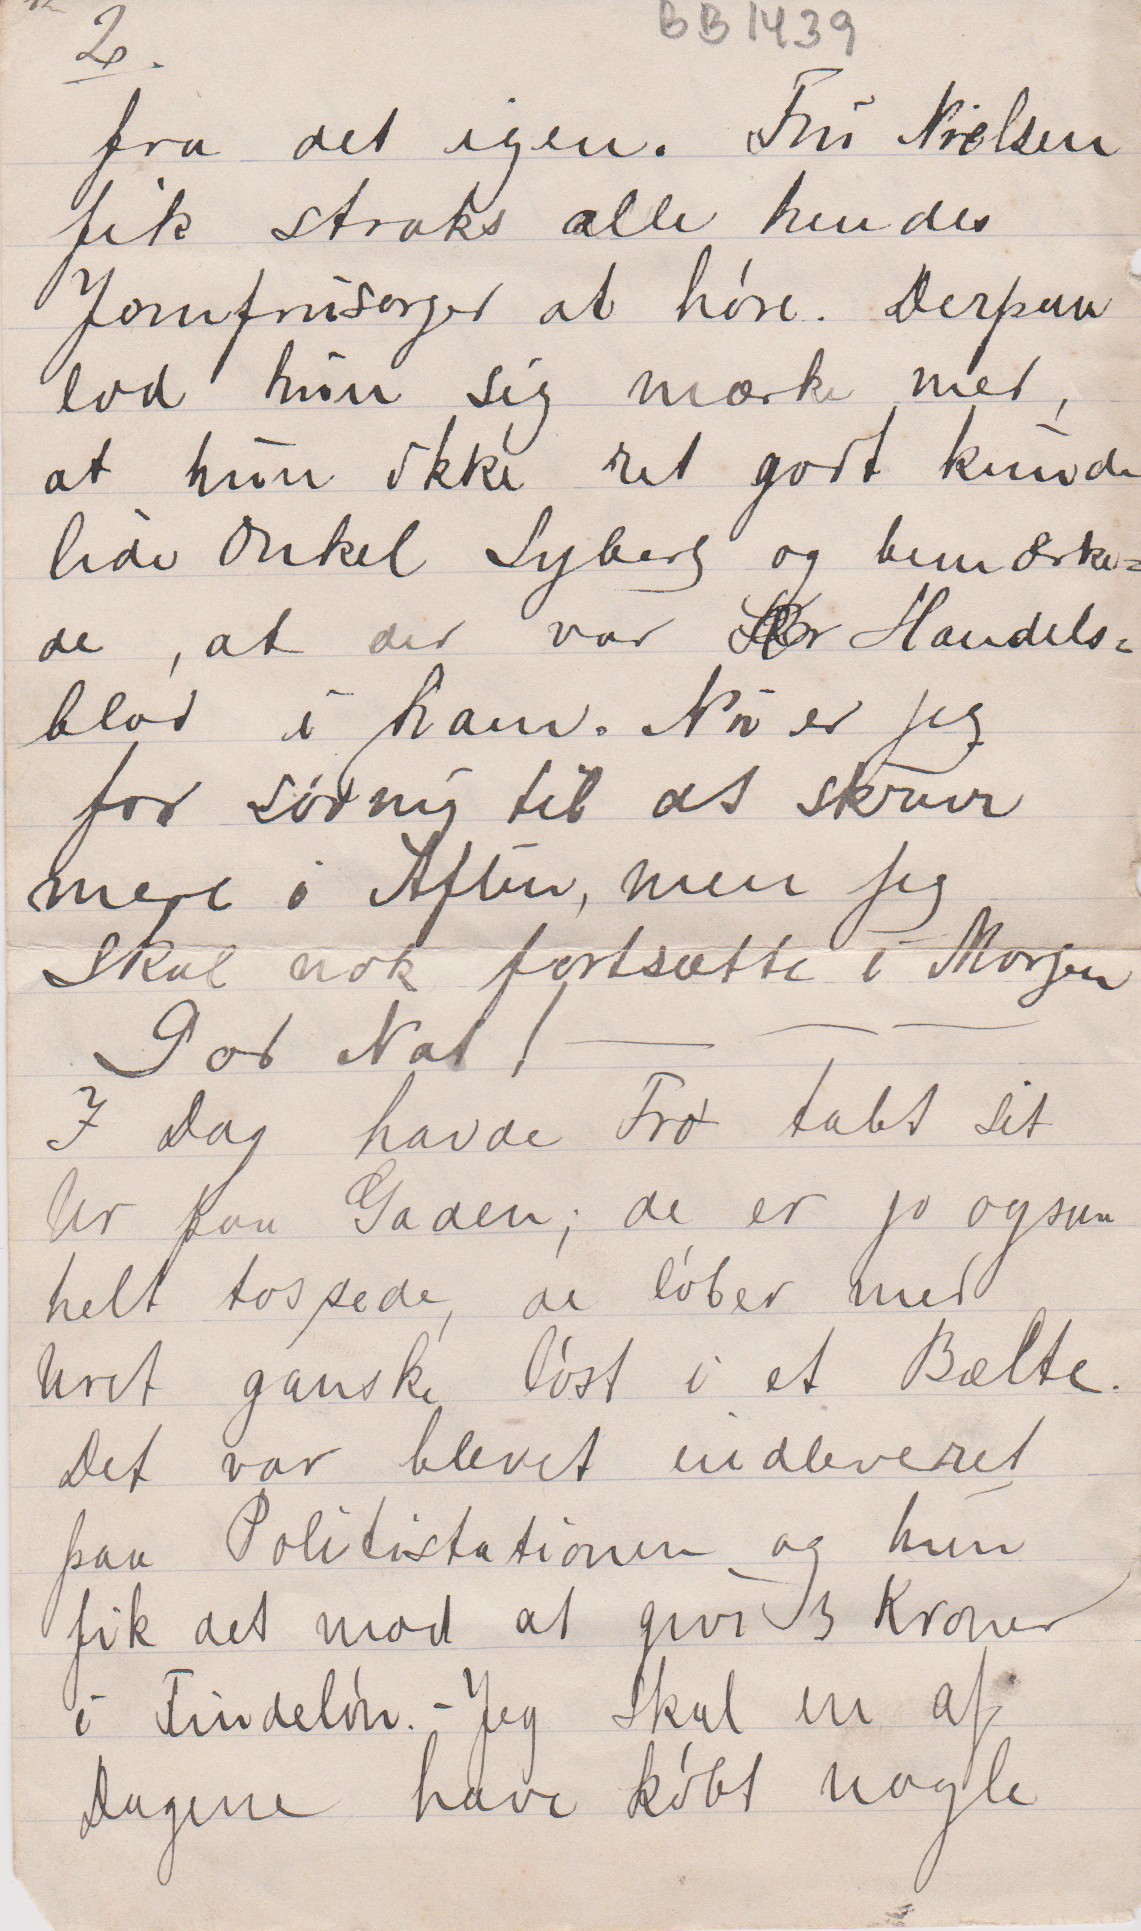 BB1439
2.
fra det igen. Fru Nielsen
fik straks alle hendes
Jomfrusorger at høre. Derpaa
lod hun sig mærke med,
at hun ikke ret godt kunde
lide Onkel Syberg og bemærke=
de, at der var Handels=
blod i ham. Nu er jeg
for søvnig til at skrive
mere i Aften, men jeg
skal nok fortsætte i Morgen
God Nat! — — —
I Dag havde Frø tabt sit
Ur paa Gaden; de er jo ogsaa
helt tossede, de løber med
Uret ganske løst i et Bælte.
Det var blevet indleveret
paa Politistationen og hun
fik det mod at give 3 Kroner
i Findeløn. - Jeg skal en af
Dagene have købt nogle